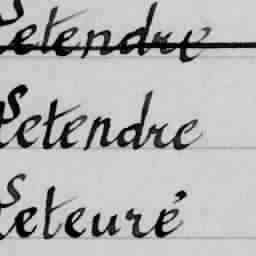 Letendre
Letendre
Leteuré